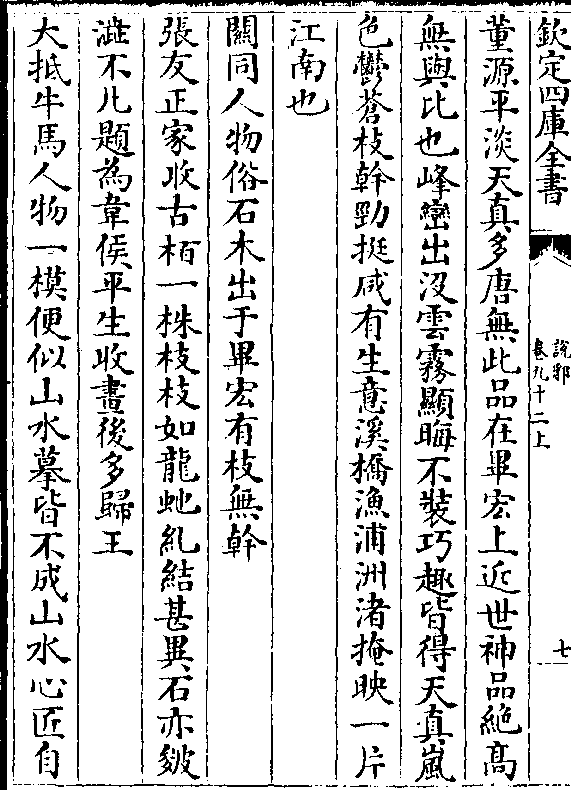 欽定四庫全書
說郛
卷九十二上
七
董源平淡天真多唐無此品在畢宏上近世神品絶髙
無與比也峰巒出沒雲霧顯晦不裝巧趣皆得天真嵐
色鬱蒼枝幹勁挺咸有生意溪橋漁浦洲渚掩映一片
江南也
關同人物俗石木出于畢宏有枝無幹
張友正家收古栢一株枝枝如龍虵糺結甚異石亦皴
澁不凡題為韋侯平生收畫後多歸王
大抵牛馬人物一模便似山水摹皆不成山水心匠自